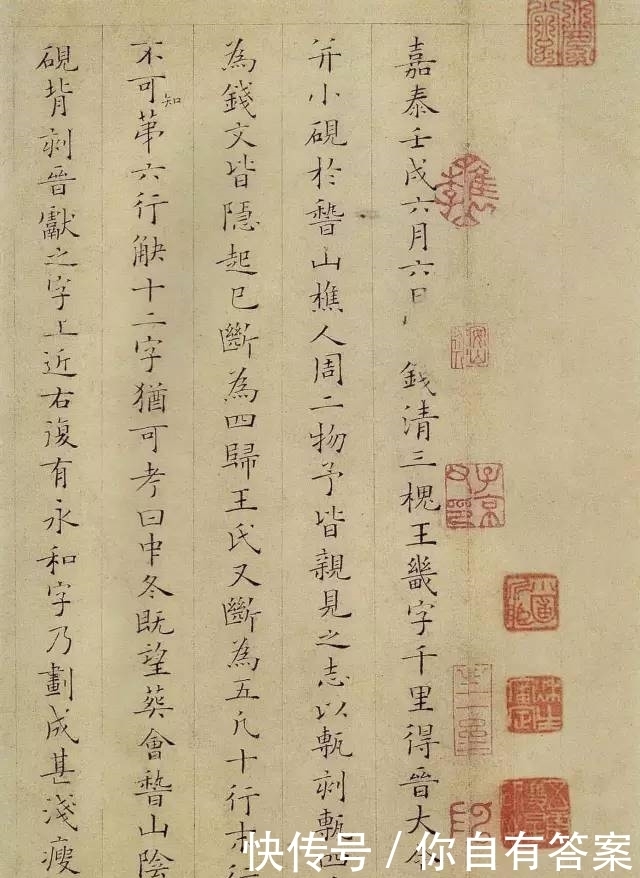 嘉泰壬戌六月六日 錢清三槐王畿字千里得晉大令
并小硯於嵇山樵人周二物予皆親見之志以甎刻甎四
為錢文皆隱起已斷為四歸王氏又斷為五凡十行末行
不可知苐六行觖十二字猶可考曰中冬既望葬會嵇山陰
硯背刻晉獻之字上近右復有永和字乃劃成甚淺瘦
子京父印
快传号／你自有答案